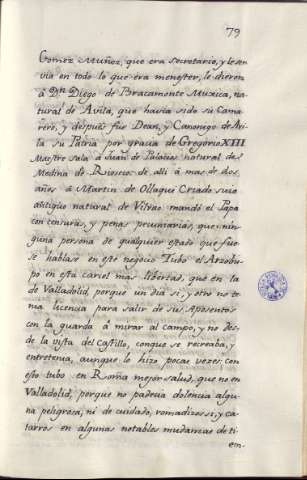 79
Gomez Muñoz, que era secretario, y le ser
via en todo lo que era menester, le dieron
à Dn. Diego de Bracamonte Muxica, na
tural de Avila, que havia sido su Cama
rero, y despues fue Dean, y Canonigo de Avi
la su Patria por gracia de Gregorio XIII
Maestre sala à Juan de Palacios natural de
Medina de Rioseco: de alli à mas de dos
años à Martin de Ollaqui Criado suio
antiguo natural de Vilvao. mandó el Papa
con censuras, y penas pecuniarias, que nin
guna persona de qualquier estado que fue
se hablase en este negocio Tubo el Arzobis
po en esta carcel mas libertad, que en la
de Valladolid, porque un dia si, y otro no te
nia licencia para salir de sus Aposentos
con la guarda à mirar al campo, y no des
de la vista del Castillo, conque se recreaba, y
entretenia, aunque lo hizo pocas veces: con
esto tubo en Roma mejor salud, que no en
Valladolid, porque no padecia dolencia algu
na peligrosa, ni de cuidado, romadizos si, y ca
tarros en algunas notables mudanzas de ti
em-